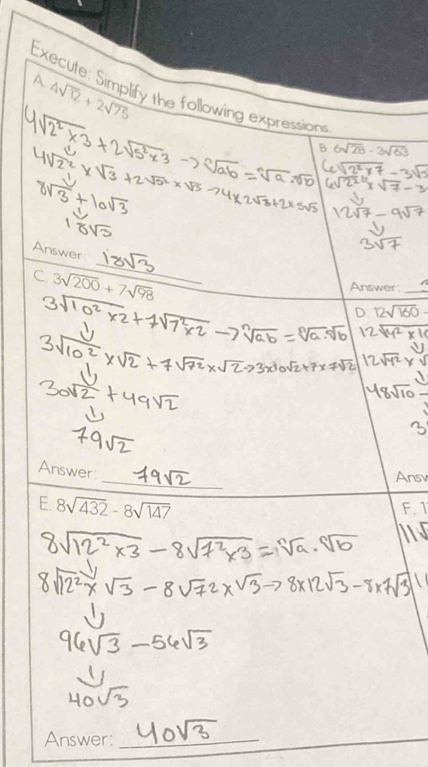 Execute: Simplify the following expressions.
A. 4√12 + 2√75
4√2²×3 + 2√5²×3 → ⁿ√ab = ⁿ√a · ⁿ√b
4√2² × √3 + 2√5² × √3 → 4×2√3+2×5√3
8√3 + 10√3
18√3
Answer: 18√3
B. 6√28 - 3√63
6√2²×7 - 3√3
6√2² × √7 - 3
12√7 - 9√7
3√7
Answer:
C. 3√200 + 7√98
3√10²×2 + 7√7²×2 → ⁿ√ab = ⁿ√a · ⁿ√b
3√10² × √2 + 7√7² × √2 → 3×10√2+7×7√2
30√2 + 49√2
79√2
Answer: 79√2
D. 12√160 -
12√4²×10
12√4² × √
48√10 -
3
Answ
E. 8√432 - 8√147
8√12²×3 - 8√7²×3 = ⁿ√a · ⁿ√b
8√12² × √3 - 8√72 × √3 → 8×12√3 - 8×7√3
96√3 - 56√3
40√3
Answer: 40√3
F. 1
11√